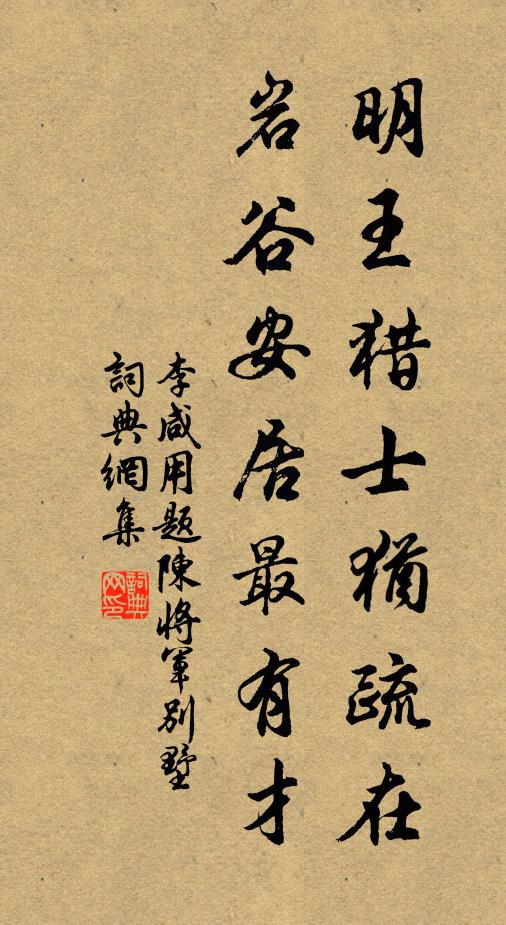 明王猎士犹疏在
岩谷安居最有才
李咸用题陳将军别墅
詞典網集
詞典网印